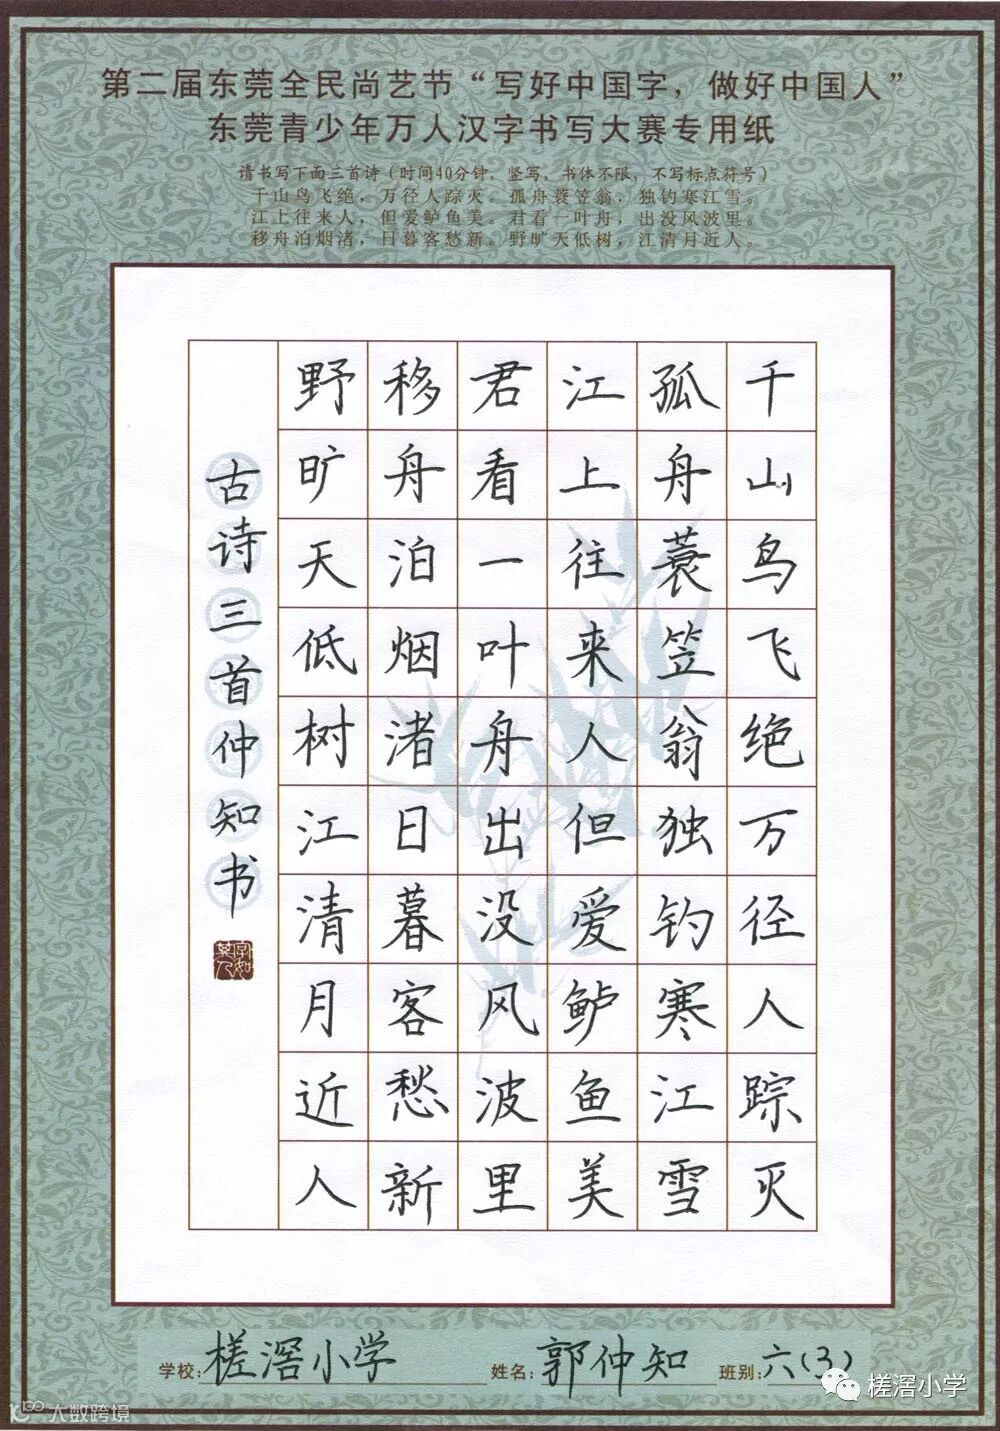 第二届东莞全民尚艺节“写好中国字，做好中国人”
东莞青少年万人汉字书写大赛专用纸
请书写下面三首诗（时间40分钟，竖写，书体不限，不写标点符号）
千山鸟飞绝，万径人踪灭。孤舟蓑笠翁，独钓寒江雪。
江上往来人，但爱鲈鱼美。君看一叶舟，出没风波里。
移舟泊烟渚，日暮客愁新。野旷天低树，江清月近人。
千山鸟飞绝万径人踪灭
孤舟蓑笠翁独钓寒江雪
江上往来人但爱鲈鱼美
君看一叶舟出没风波里
移舟泊烟渚日暮客愁新
野旷天低树江清月近人
古诗三首仲知书
字如其人
学校:槎滘小学 姓名:郭仲知 班别:六(3)
槎滘小学
大数跨境